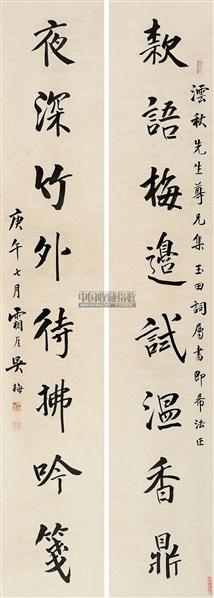 澐秋先生尊兄集玉田詞屬書即希法正
款語梅邊試溫香鼎
夜深竹外待拂吟箋
庚午七月霜厓吳梅
中国收藏指数